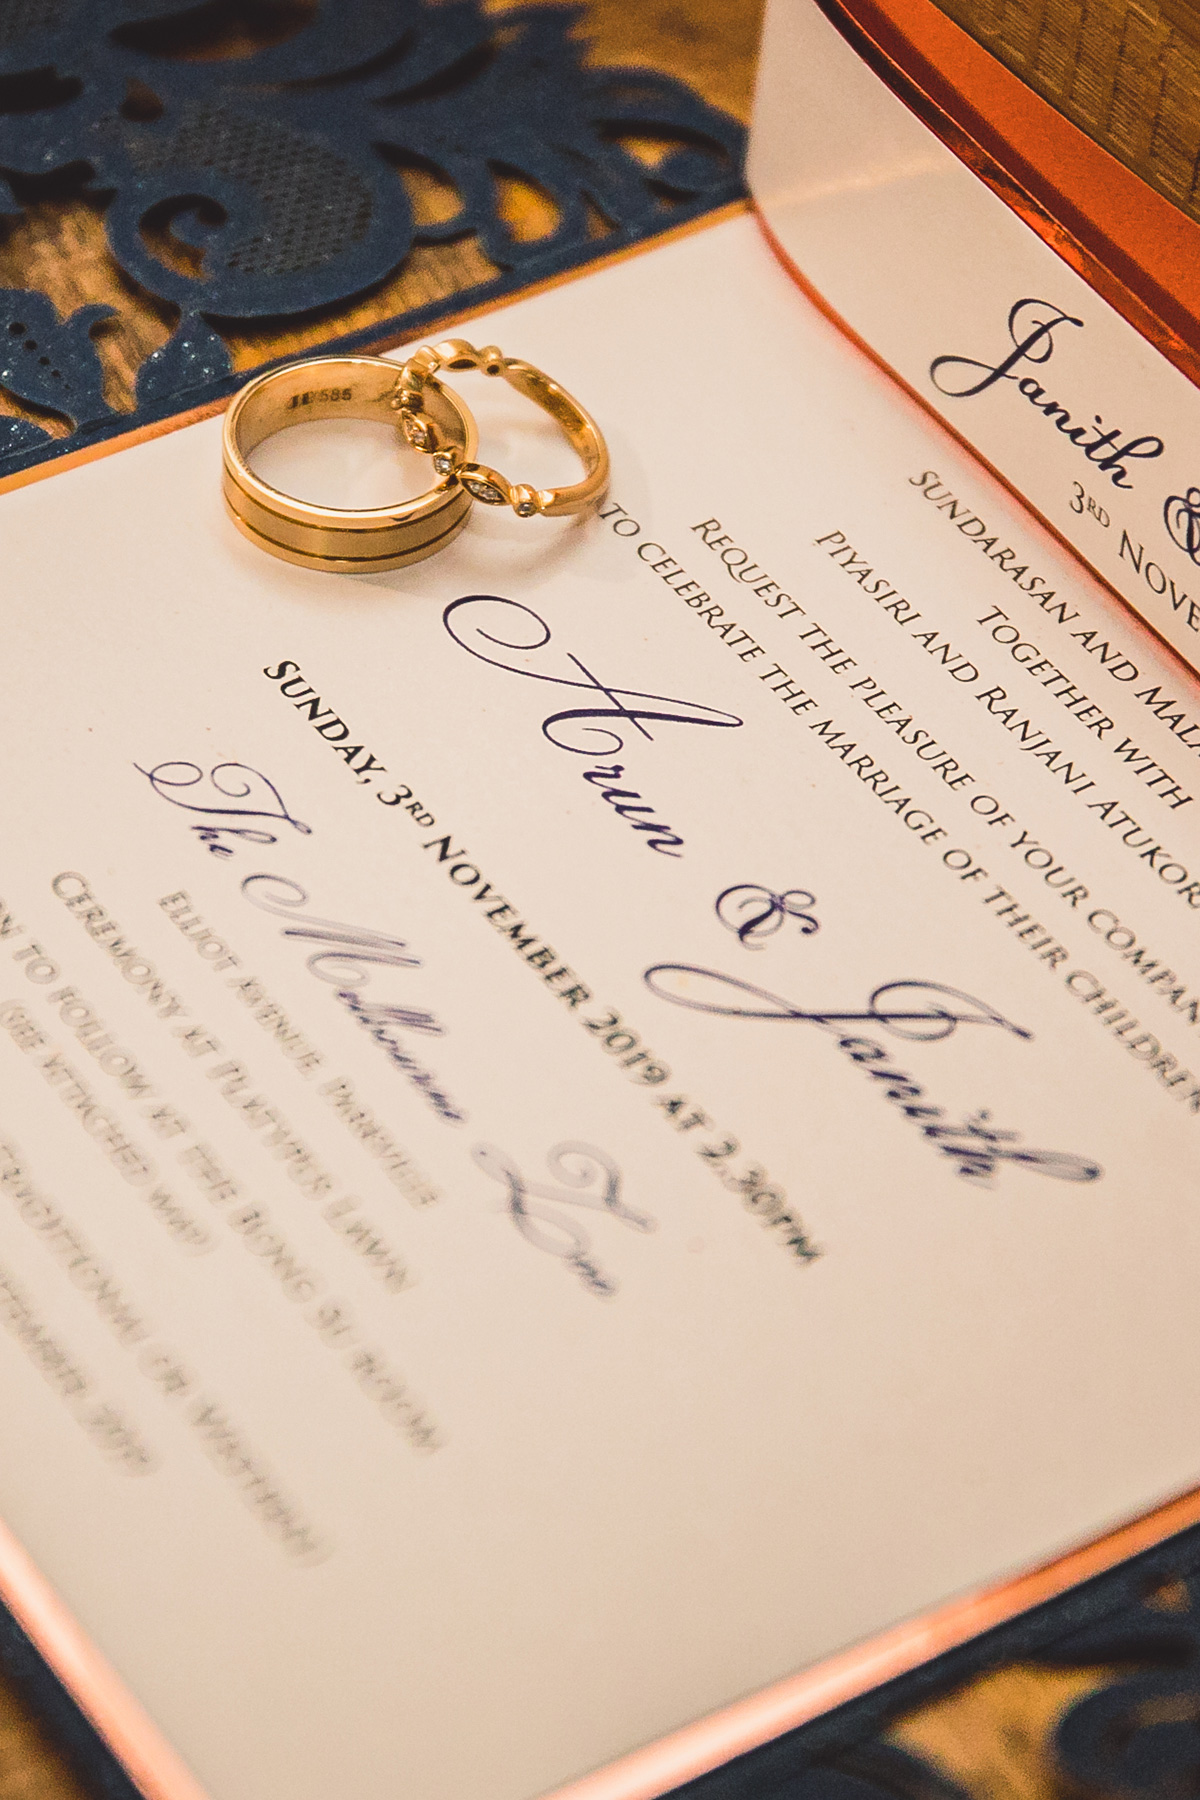 JE 585
Janith &
3RD NOVE
SUNDARASAN AND MALA
TOGETHER WITH
PIYASIRI AND RANJANI ATUKOR
REQUEST THE PLEASURE OF YOUR COMPAN
TO CELEBRATE THE MARRIAGE OF THEIR CHILDREN
Arun
&
Janith
SUNDAY, 3RD NOVEMBER 2019 AT 2.30PM
The Melbourne Zoo
ELLIOT AVENUE, PARKVILLE
CEREMONY AT PLATYPUS LAWN
ON TO FOLLOW AT THE BONG SU ROOM
(SEE ATTACHED MAP)